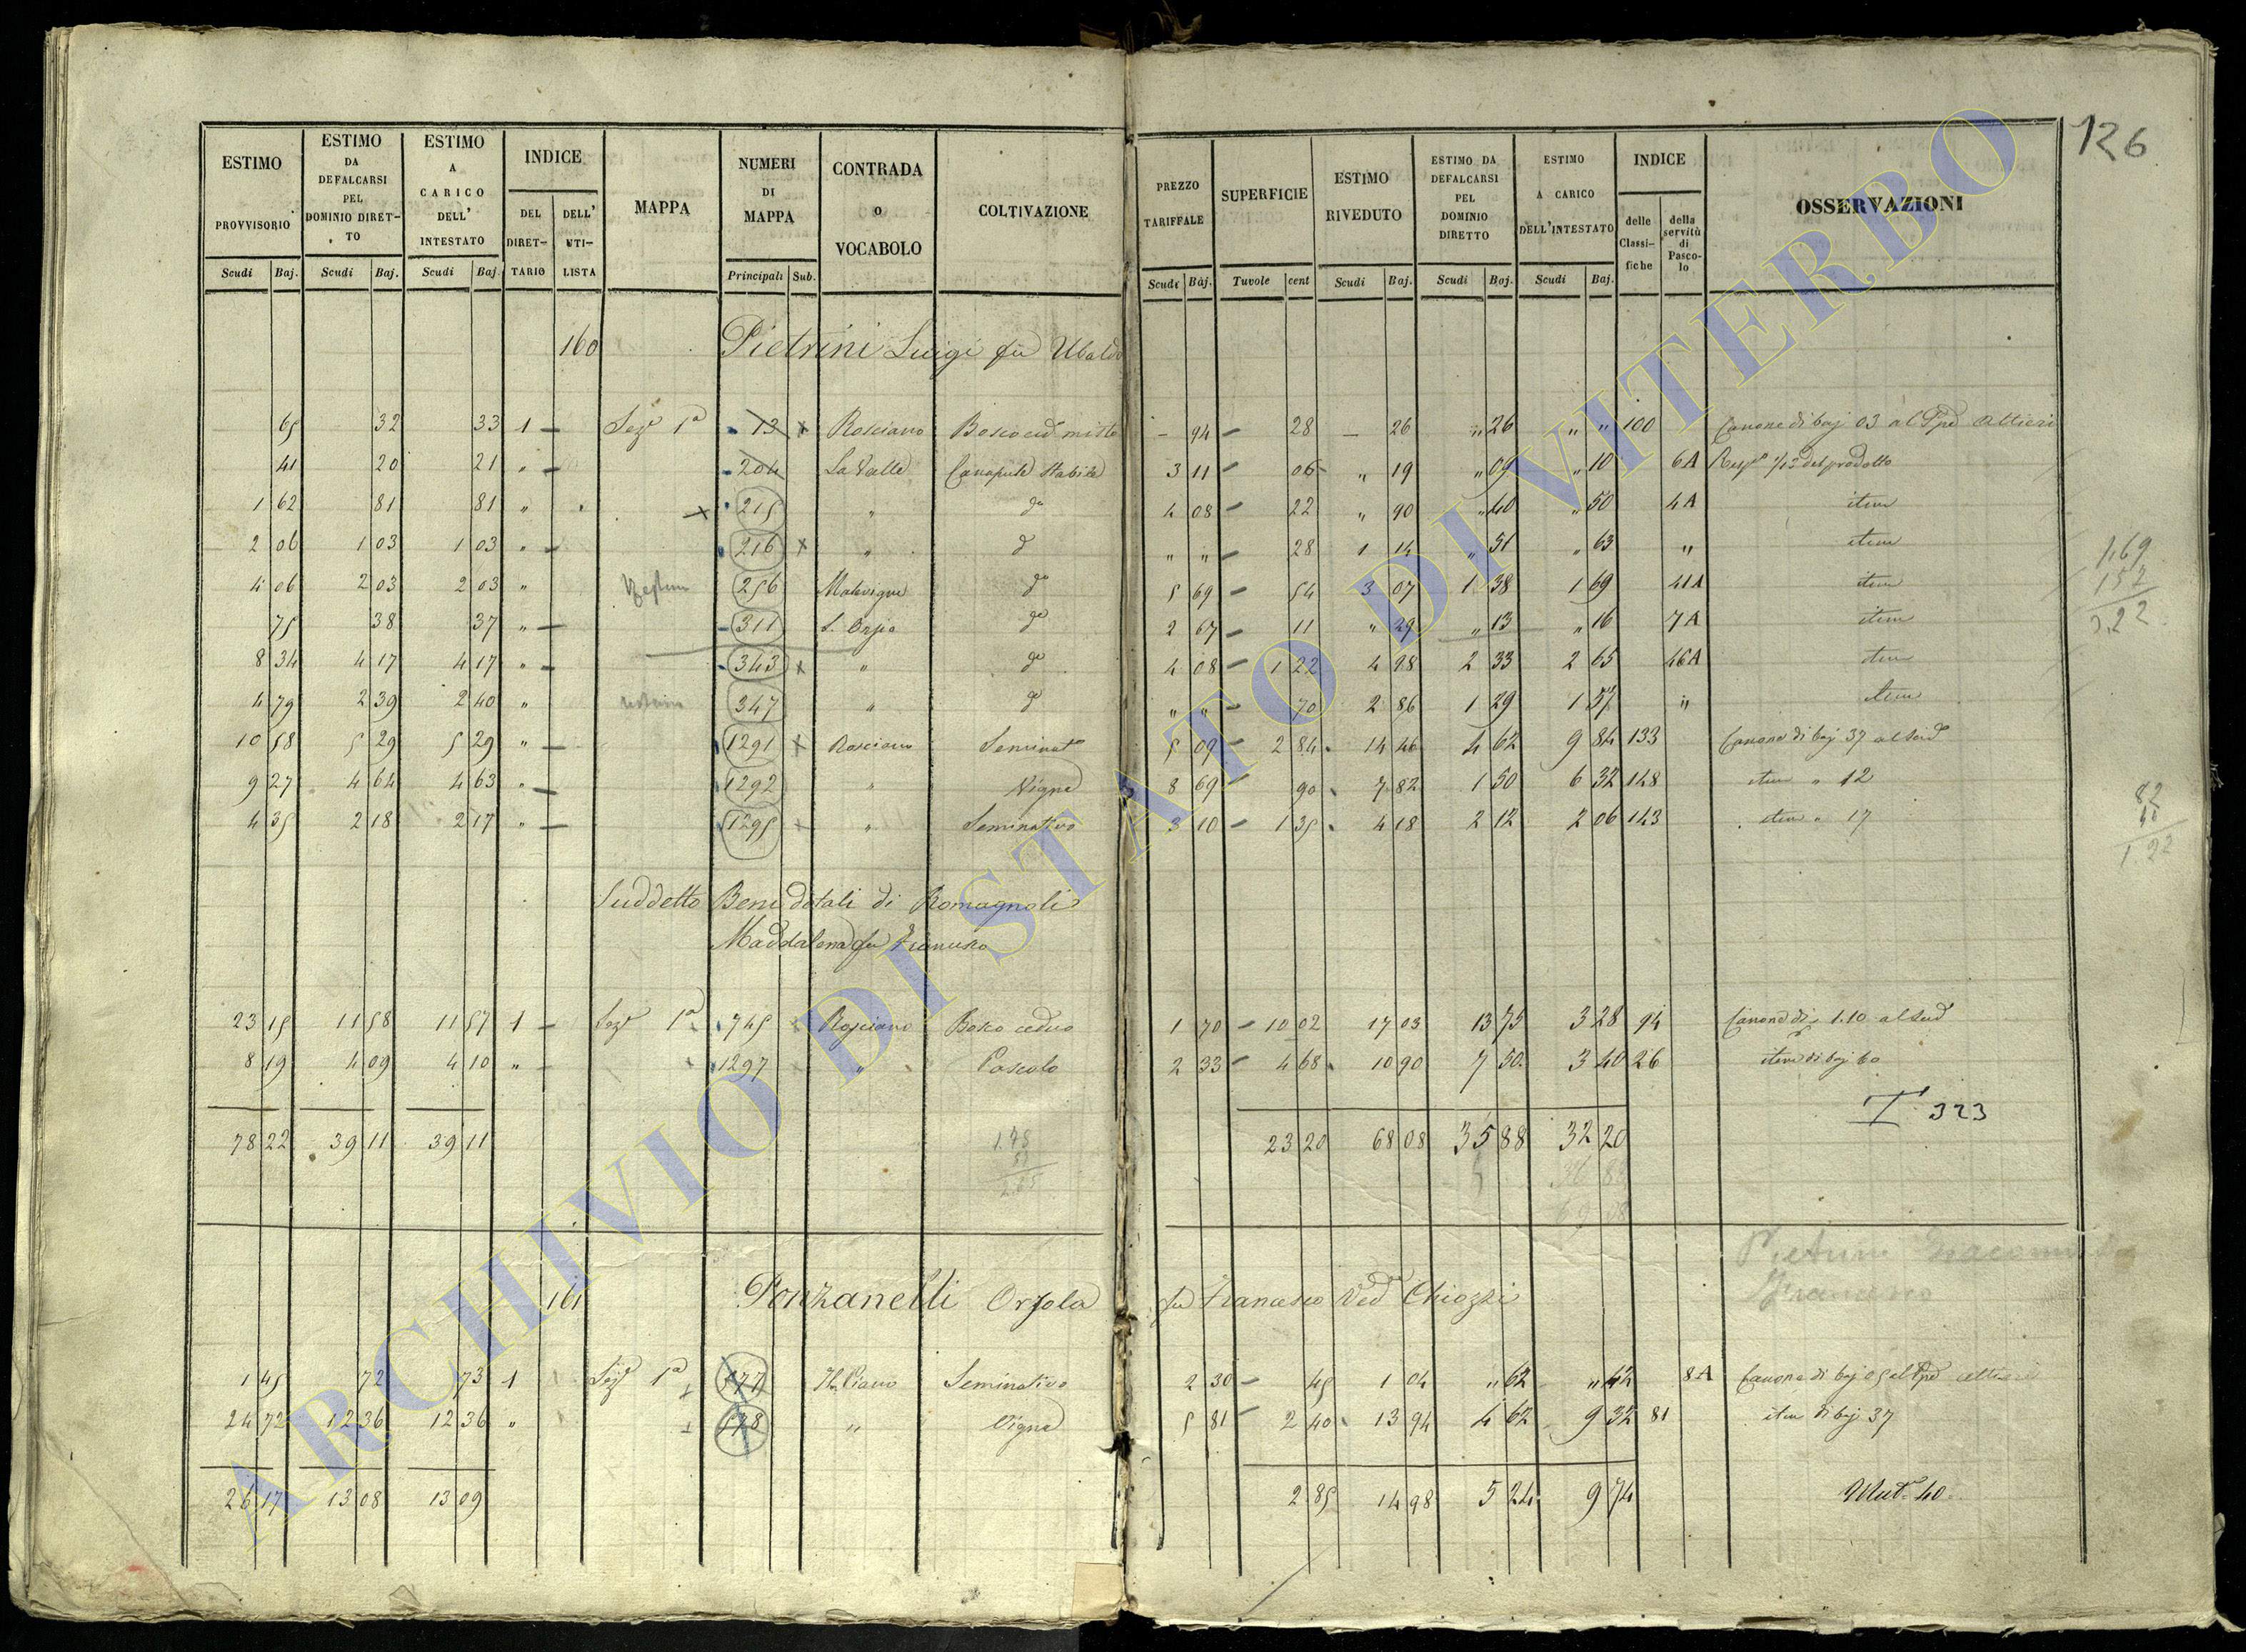 126
ESTIMO PROVVISORIO Scudi Baj.
ESTIMO DA DEFALCARSI PEL DOMINIO DIRETTO Scudi Baj.
ESTIMO A CARICO DELL' INTESTATO Scudi Baj.
INDICE DEL DIRETTARIO DELL' UTILISTA
MAPPA
NUMERI DI MAPPA Principali Sub.
CONTRADA o VOCABOLO
COLTIVAZIONE
PREZZO TARIFFALE Scudi Baj.
SUPERFICIE Tavole cent
ESTIMO RIVEDUTO Scudi Baj.
ESTIMO DA DEFALCARSI PEL DOMINIO DIRETTO Scudi Baj.
ESTIMO A CARICO DELL'INTESTATO Scudi Baj.
INDICE delle Classifiche della servitù di Pascolo
OSSERVAZIONI
160 Pietrini Luigi fu Ubaldo
65 32 33 1 Seze 1a 13 Rosciano Bosco ced. misto 94 28 26 " 26 " " 100 Canone di baj 03 al Altieri
41 20 21 " 204 La Valle Canapule stabile 3 11 06 " 19 " 09 " 10 6A 1/13 del prodotto
1 62 81 81 " 215 " do 4 08 22 " 90 " 40 " 50 4A item
2 06 1 03 1 03 " 216 " d " " 28 1 14 " 51 " 63 " item
4 06 2 03 2 03 " 256 do 5 69 54 3 07 1 38 1 69 41A item
75 38 37 " 311 do 2 67 11 " 29 " 13 " 16 7A item
8 34 4 17 4 17 " 343 " do 4 08 1 22 4 98 2 33 2 65 46A item
4 79 2 39 2 40 " 347 " do " " 70 2 86 1 29 1 57 " item
10 58 5 29 5 29 " 1291 Rosciano Seminato 5 09 2 84 14 46 4 62 9 84 133 Canone di baj 37 al sud
9 27 4 64 4 63 " 1292 " Vigna 8 69 90 7 82 1 50 6 32 148 item " 12
4 35 2 18 2 17 " 1295 " Seminativo 3 10 1 35 4 18 2 12 2 06 143 item " 17
1,69
1 57
82
40
1.22
Suddetto Beni dotali di Romagnoli
Maddalena fu Francesco
23 15 11 58 11 57 1 Seze 1a 745 Rosciano Bosco ceduo 1 70 10 02 17 03 13 75 3 28 94 Canone di 1.10 al sud
8 19 4 09 4 10 " 1297 " Pascolo 2 33 4 68 10 90 7 50 3 40 26 item di baj 60
T 323
78 22 39 11 39 11 23 20 68 08 35 88 32 20
Pietrini Giacomo
Francesco
161 Ponzanelli Orsola fu Francesco Ved Chiozzi
1 45 72 73 1 Seze 1a 177 Il Piano Seminativo 2 30 45 1 04 " 62 " 42 8A Canone di baj 05 al Altieri
24 72 12 36 12 36 " 178 " Vigna 5 81 2 40 13 94 4 62 9 32 81 item di baj 37
26 17 13 08 13 09 2 85 14 98 5 24 9 74 Mut. 40
ARCHIVIO DI STATO DI VITERBO